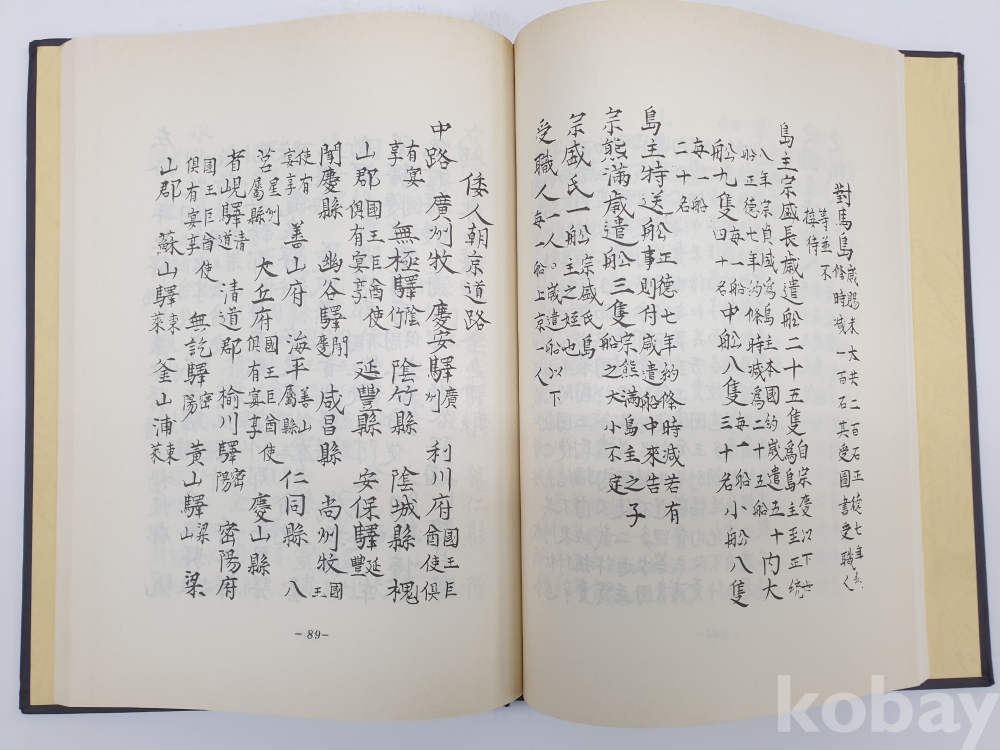 對馬島歲賜米太共二百石正德七年約條時減一百石其受圖書受職人
等並不接待
島主宗盛長歲遣船二十五隻自宗慶以下世爲島主至正統
八年宗貞盛爲島主本國約歲遣五十船正德七年約條時減爲二十五船內大
船九隻每一船四十名中船八隻每一船三十名小船八隻
每一船二十名
島主特送船正德七年約條時減若有事則付歲遣船中來告
宗熊滿歲遣船三隻宗熊滿島主之子船之大小不定
宗盛氏一船宗盛氏島主之姪也
受職人一人歲遣船以下每一船上京一人
倭人朝京道路
中路 廣州牧 慶安驛廣州 利川府國王巨酋使俱
有宴享 無極驛陰竹 陰竹縣 陰城縣 槐
山郡國王巨酋使俱有宴享 延豐縣 安保驛延豐
聞慶縣 幽谷驛聞慶 咸昌縣 尙州牧國王
使有宴享 善山府 海平善山屬縣 仁同縣 八
莒星州屬縣 大丘府國王巨酋使俱有宴享 慶山縣
省峴驛清道 清道郡 楡川驛密陽 密陽府
國王巨酋使俱有宴享 無訖驛密陽 黃山驛梁山 梁
山郡 蘇山驛東萊 釜山浦東萊
-89-
kobay